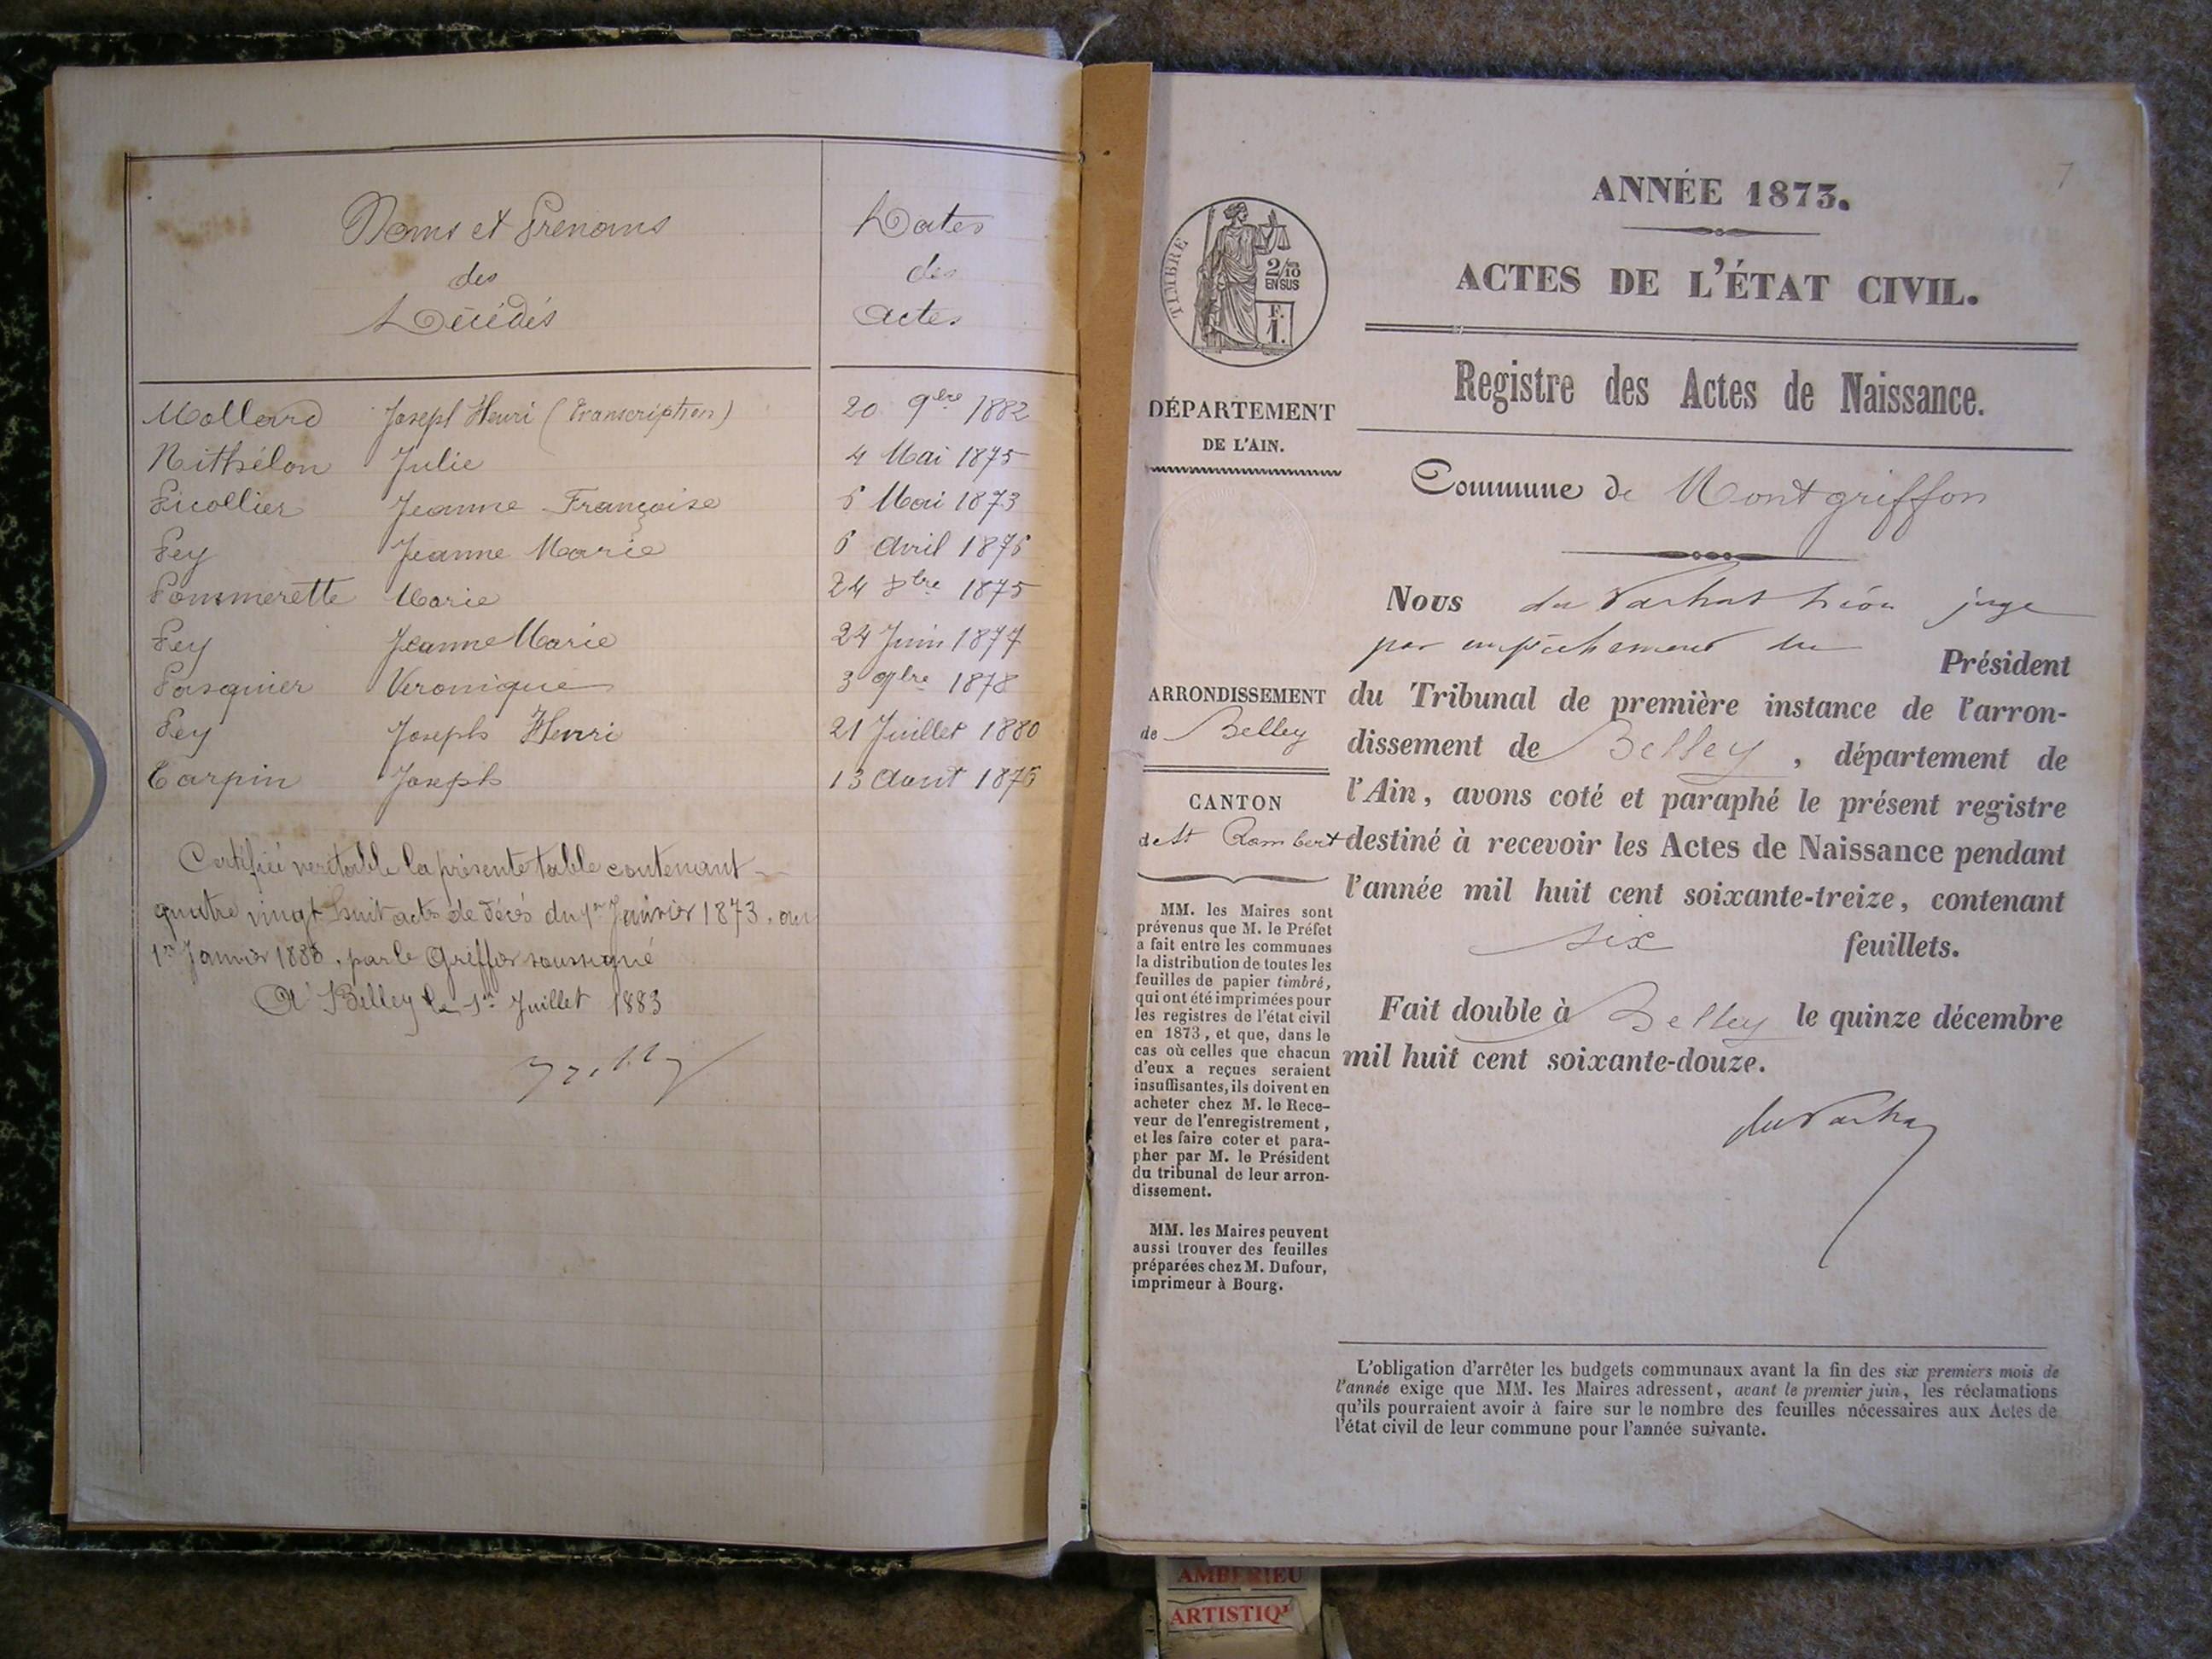 Noms et Prenoms
des
Décédés
Dates
des
actes
Mollard Joseph Henri (Transcription) 20 9bre 1882
Nithélon Julie 4 Mai 1875
Picollier Jeanne Françoise 6 Mai 1873
Pey Jeanne Marie 6 avril 1876
Pommerette Marie 24 8bre 1875
Pey Jeanne Marie 24 Juin 1877
Pasquier Veronique 3 9bre 1878
Pey Joseph Henri 21 Juillet 1880
Carpin Joseph 13 Aout 1876
Certifiée veritable la présente table contenant
quatre vingt huit actes de décès du 1er Janvier 1873, au
1er Janvier 1883, par le Greffier soussigné
A Belley le 1er Juillet 1883
7
ANNÉE 1873.
ACTES DE L'ÉTAT CIVIL.
Registre des Actes de Naissance.
Commune de Montgriffon
TIMBRE
2/10
EN SUS
F.
1.
DÉPARTEMENT
DE L'AIN.
ARRONDISSEMENT
de Belley
CANTON
de St Rambert
MM. les Maires sont
prévenus que M. le Préfet
a fait entre les communes
la distribution de toutes les
feuilles de papier timbré,
qui ont été imprimées pour
les registres de l'état civil
en 1873, et que, dans le
cas où celles que chacun
d'eux a reçues seraient
insuffisantes, ils doivent en
acheter chez M. le Rece-
veur de l'enregistrement,
et les faire coter et para-
pher par M. le Président
du tribunal de leur arron-
dissement.
MM. les Maires peuvent
aussi trouver des feuilles
préparées chez M. Dufour,
imprimeur à Bourg.
Nous du Léon juge
par empêchement du Président
du Tribunal de première instance de l'arron-
dissement de Belley, département de
l'Ain, avons coté et paraphé le présent registre
destiné à recevoir les Actes de Naissance pendant
l'année mil huit cent soixante-treize, contenant
six feuillets.
Fait double à Belley le quinze décembre
mil huit cent soixante-douze.
L'obligation d'arrêter les budgets communaux avant la fin des six premiers mois de
l'année exige que MM. les Maires adressent, avant le premier juin, les réclamations
qu'ils pourraient avoir à faire sur le nombre des feuilles nécessaires aux Actes de
l'état civil de leur commune pour l'année suivante.
AMBERIEU
ARTISTIQ